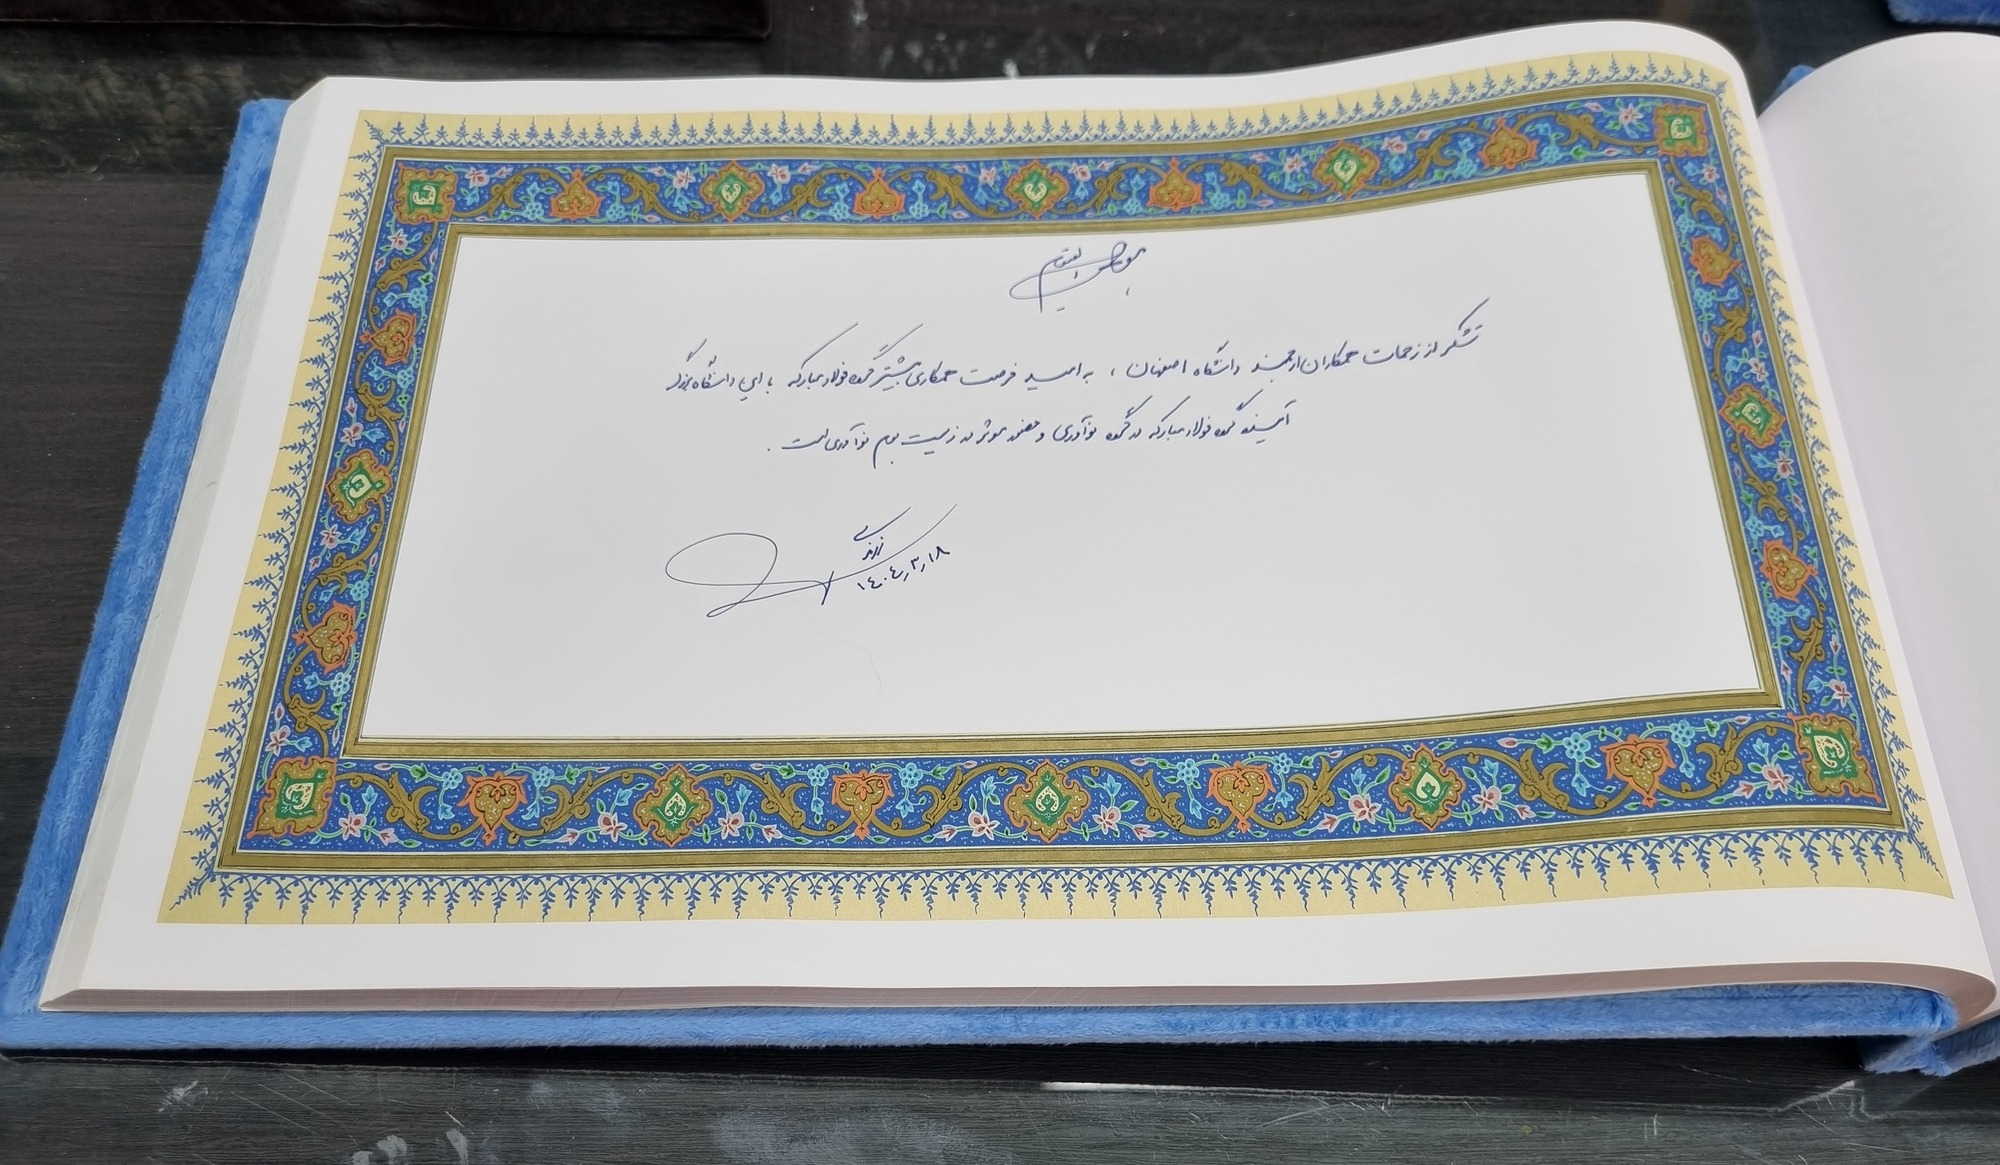 هوالحی القیوم
تشکر از زحمات همکاران ارجمند دانشگاه اصفهان ، به امید فرصت همکاری بیشتر گروه فولاد مبارکه با این دانشگاه بزرگ
آینده گروه فولاد مبارکه در گرو نوآوری و حضور موثر در زیست بوم نوآوری است .
زرندی
۱۴۰۴٫۳٫۱۸